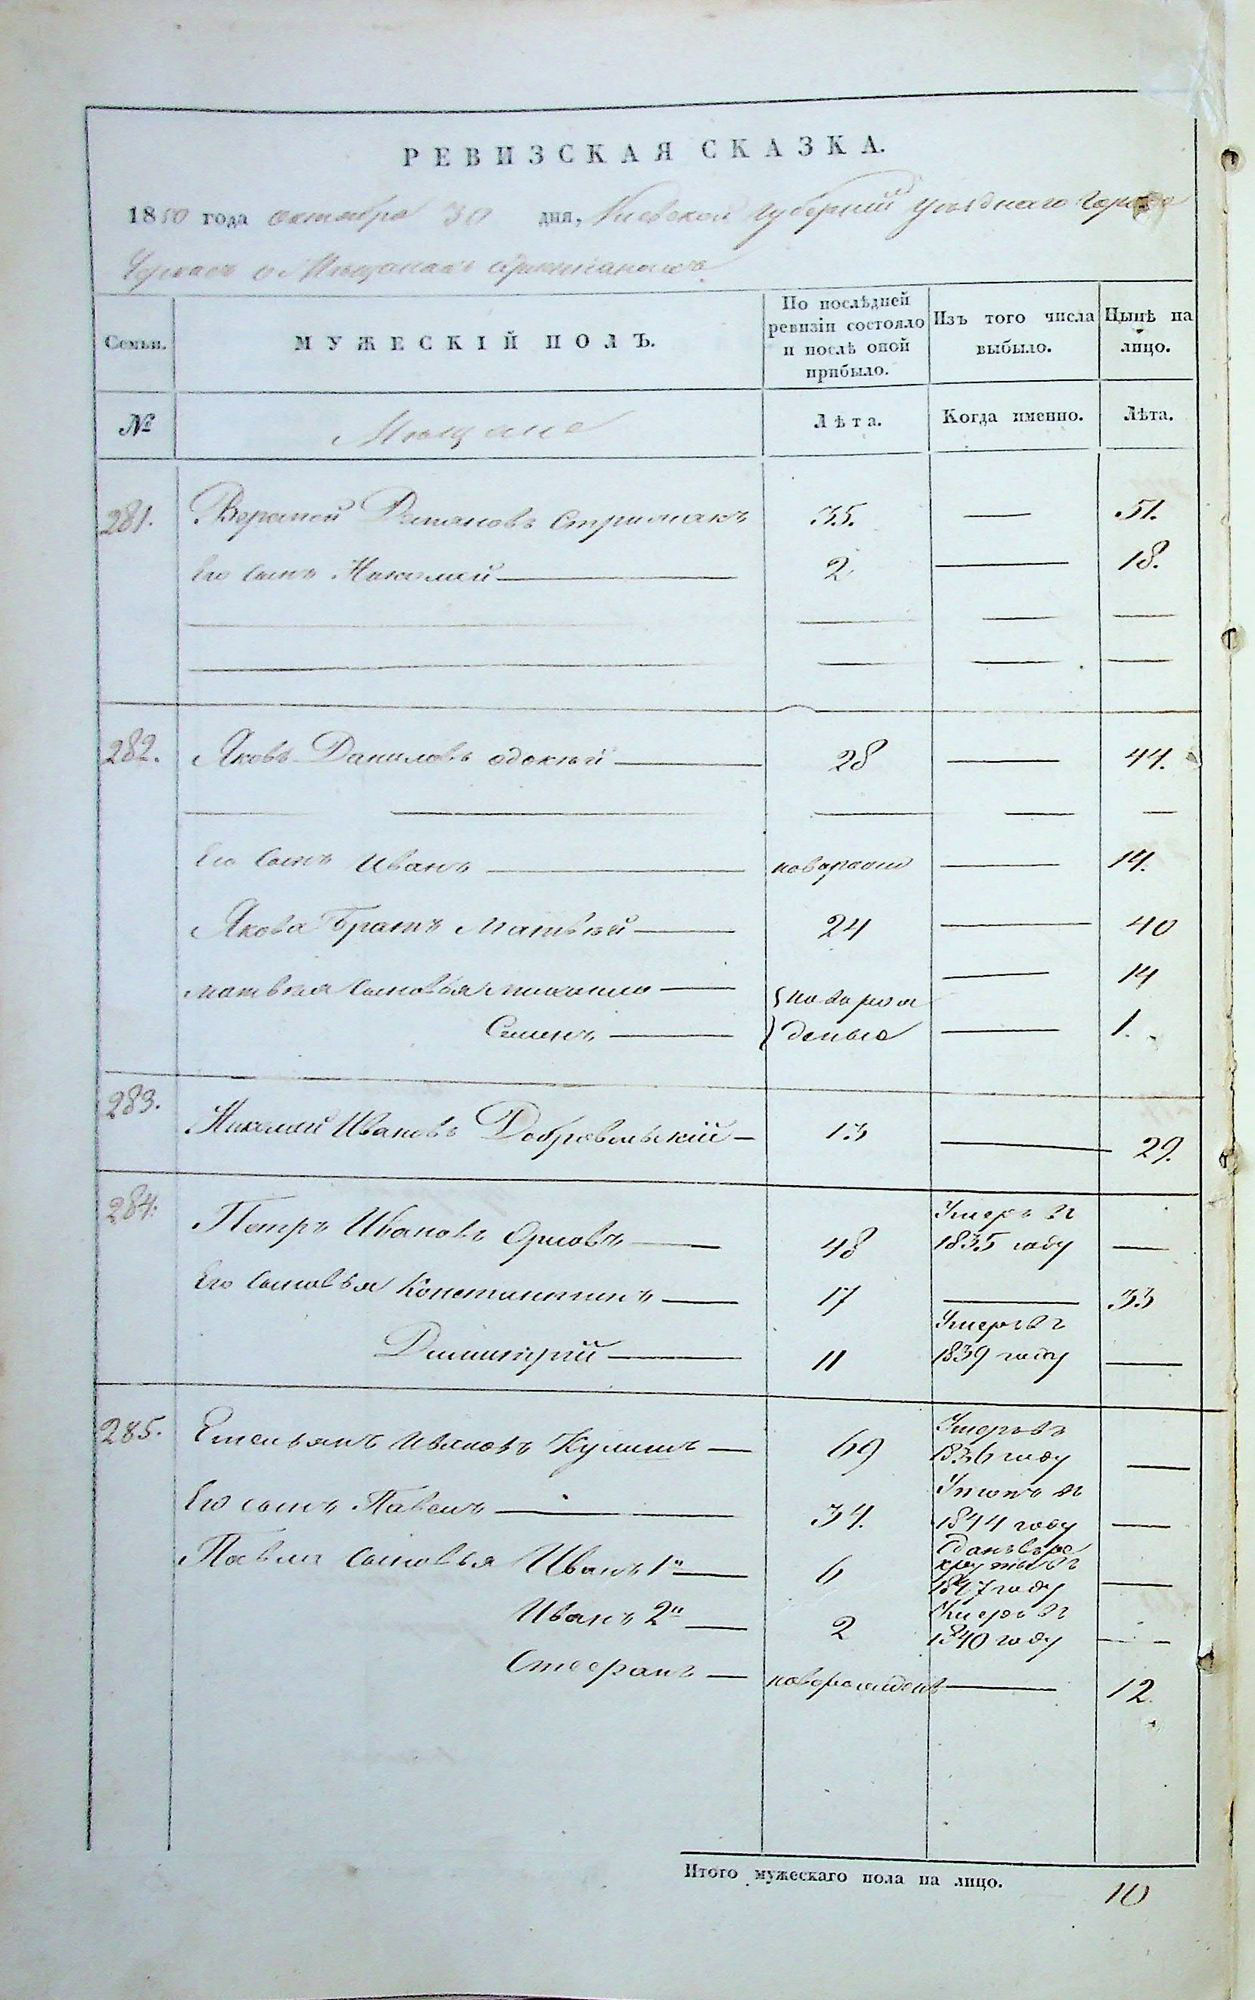 РЕВИЗСКАЯ СКАЗКА.
1850 года октября 30 дня, Киевской губернии уѣзднаго города
Черкасъ о Мещанахъ христіанахъ
Семьи. МУЖЕСКІЙ ПОЛЪ. По послѣдней ревизіи состояло и послѣ оной прибыло. Изъ того числа выбыло. Нынѣ на лицо.
№ Мещане Лѣта. Когда именно. Лѣта.
281. Веремей Демьяновъ 35. — 51.
Его сынъ Николай — 2 — 18.
282. Яковъ Даниловъ — 28 — 44.
Его сынъ Иванъ — новорожд — 14.
Якова Братъ Матвѣй — 24 — 40
Матвея сыновья Михайло — 14
Семенъ — } новорож
деные — 1.
283. Николай Ивановъ Добровольскій — 13 — 29.
284. Петръ Ивановъ Орловъ — 48 Умеръ въ
1835 году —
Его сыновья Константинъ — 17 — 33
Димитрій — 11 Умеръ въ
1839 году —
285. Емельянъ Ивановъ Кулишъ — 69 Умеръ въ
1836 году —
Его сынъ Павелъ — 34. Умеръ въ
1844 году —
Павла сыновья Иванъ 1й — 6 Сданъ въ ре
круты въ
1847 году —
Иванъ 2й — 2 Умеръ въ
1840 году —
Стефанъ — новорожденъ — 12.
Итого мужескаго пола на лицо. 10